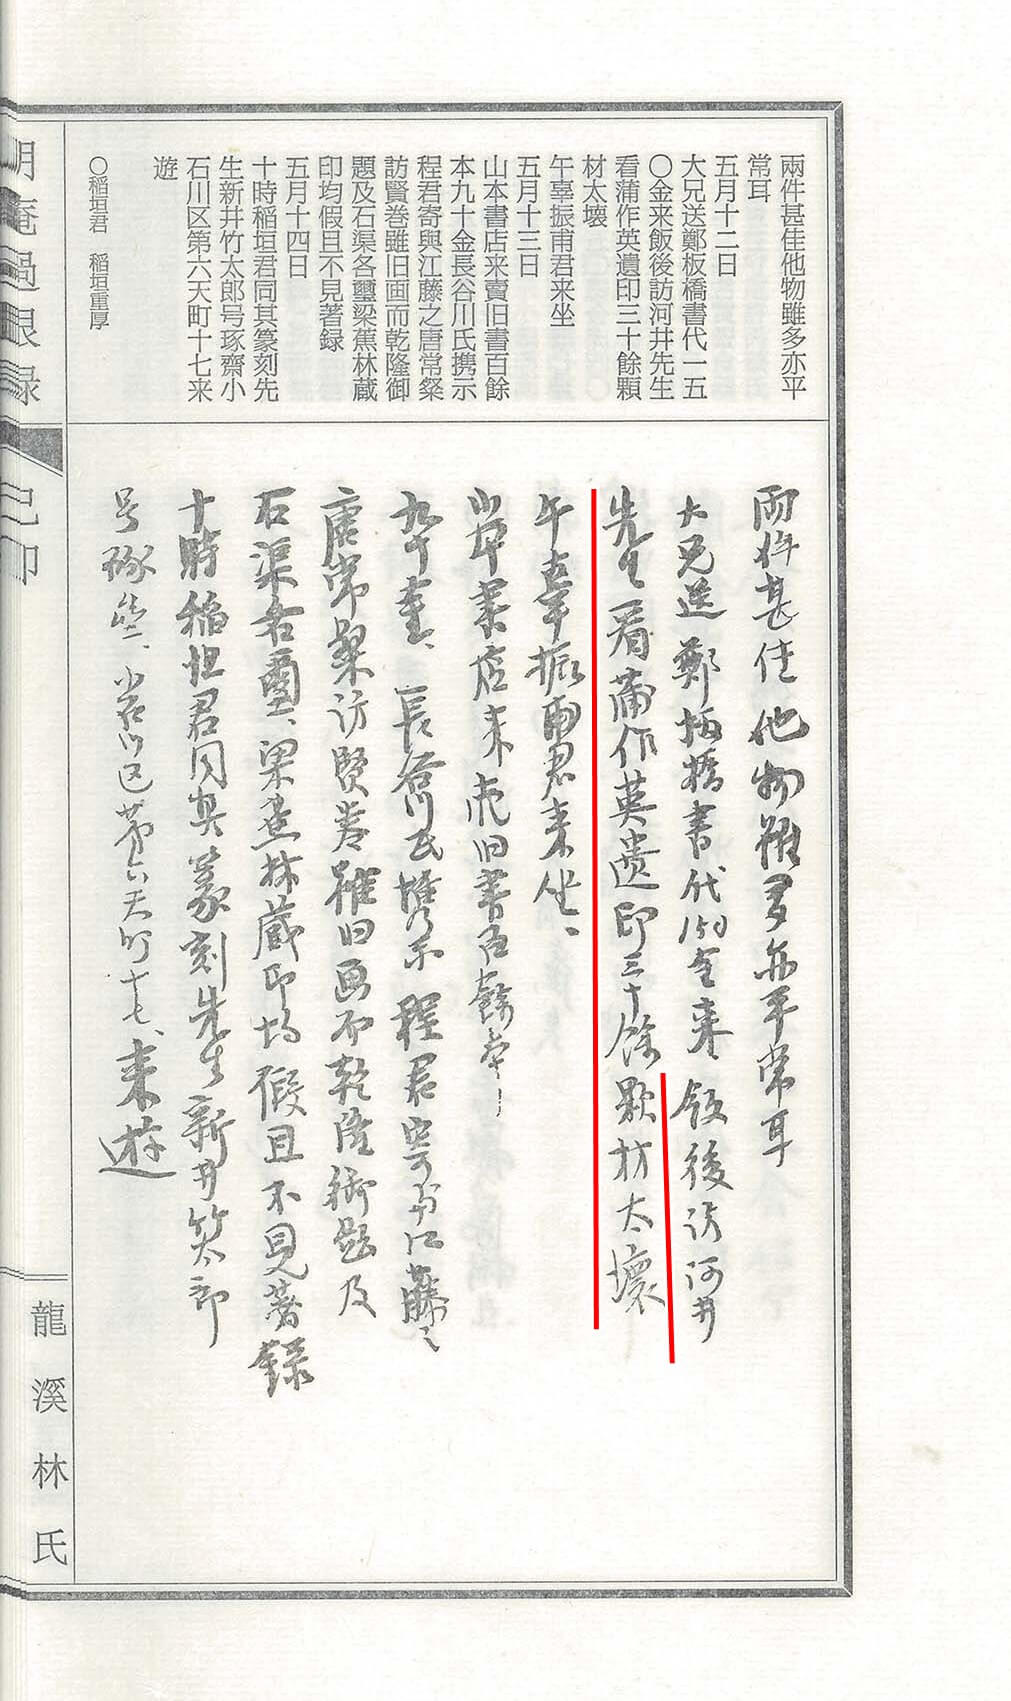 兩件甚佳他物雖多亦平
常耳
五月十二日
大兄送鄭板橋書代一五
〇金来飯後訪河井先生
看蒲作英遺印三十餘顆
材太壊
午辜振甫君来坐
五月十三日
山本書店来賣旧書百餘
本九十金長谷川氏携示
程君寄與江藤之唐常粲
訪賢巻雖旧画而乾隆御
題及石渠各璽梁蕉林蔵
印均假且不見著録
五月十四日
十時稲垣君同其篆刻先
生新井竹太郎号琢齋小
石川区第六天町十七来
遊
〇稲垣君 稲垣重厚
兩件甚佳他物雖多亦平常耳
大兄送鄭板橋書代150金来飯後訪河井
先生看蒲作英遺印三十餘顆材太壞
午辜振甫君来坐、
山本書店来売旧書百餘本
九十金、長谷川氏携示程君寄与江藤之
唐常粲訪賢巻雖旧画而乾隆御題及
石渠各璽、梁蕉林蔵印均假且不見著録
十時稲垣君同其篆刻先生新井竹太郎
号琢斎、小石川区第六天町十七、来遊
過眼録
己卯
龍溪林氏